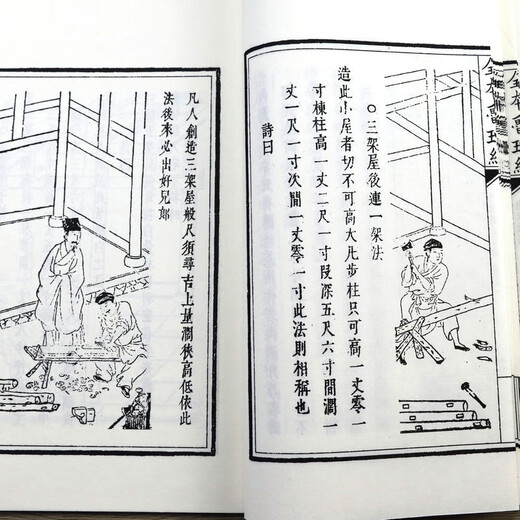 〇三架屋後連一架法
造此小屋者切不可高大凡步柱只可高一丈零一
寸棟柱高一丈二尺一寸段深五尺六寸間濶一
丈一尺一寸次間一丈零一寸此法則相稱也
詩曰
凡人創造三架屋般尺須尋吉上量濶狹高低依此
法後來必出好兒郎